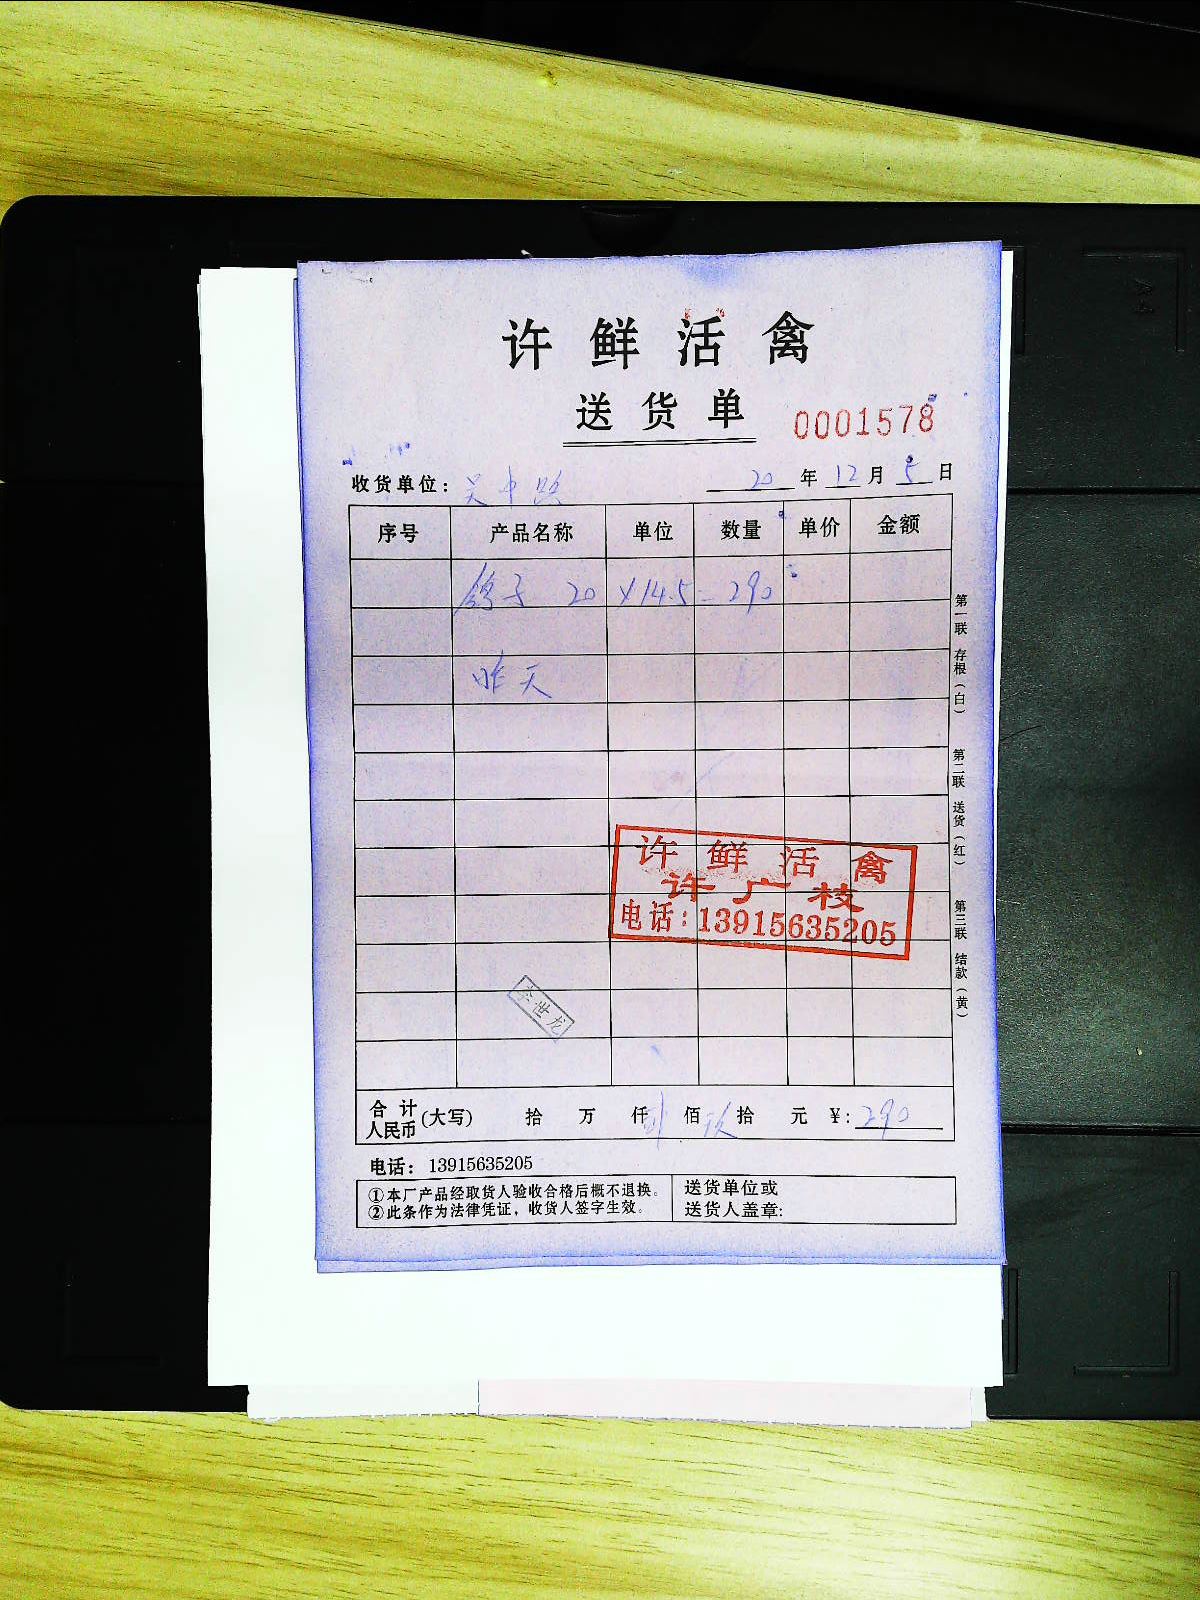 许鲜活禽
送货单 0001578
收货单位: 吴中路 20年12月5日
序号 产品名称 单位 数量 单价 金额
鸽子 20×14.5=290
昨天
许鲜活禽
许广枝
电话:13915635205
李世龙
合计人民币(大写) 拾 万 仟 贰佰 玖拾 元 ¥:290
电话: 13915635205
①本厂产品经取货人验收合格后概不退换。
②此条作为法律凭证,收货人签字生效。
送货单位或
送货人盖章:
第一联 存根(白) 第二联 送货(红) 第三联 结款(黄)
A4